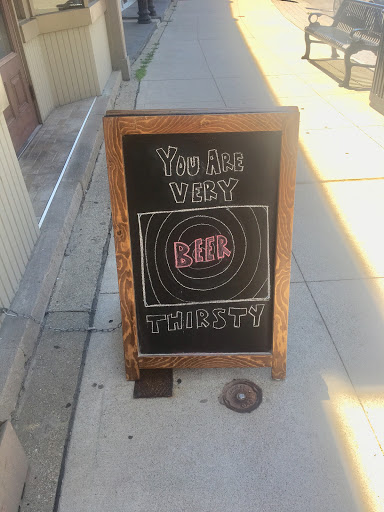 YOU ARE
VERY
BEER
THIRSTY